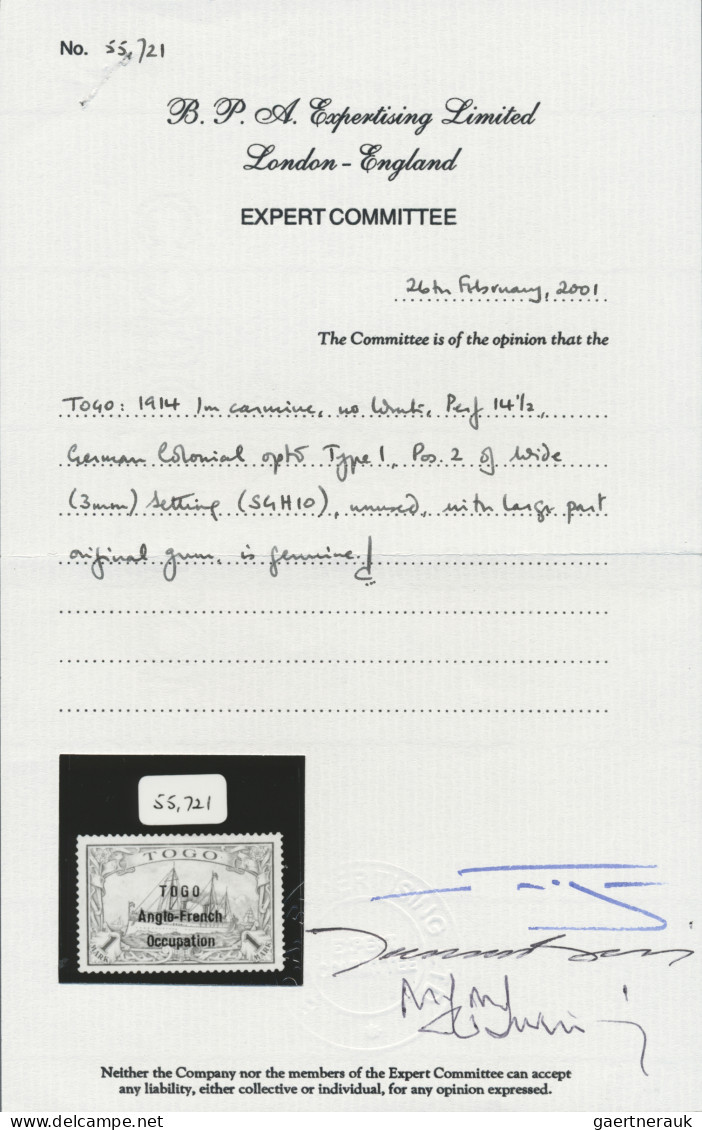 No. 55,721
B. P. A. Expertising Limited
London - England
EXPERT COMMITTEE
26th February, 2001
The Committee is of the opinion that the
TOGO: 1914 1m carmine, no Wmk, Perf 14½,
German Colonial optd Type 1, Pos. 2 of wide
(3mm) Setting (SGH10), unused, with large part
original gum, is genuine.
55,721
TOGO
TOGO
Anglo-French
Occupation
1 1
MARK MARK
Neither the Company nor the members of the Expert Committee can accept
any liability, either collective or individual, for any opinion expressed.
www.delcampe.net
gaertnerauk